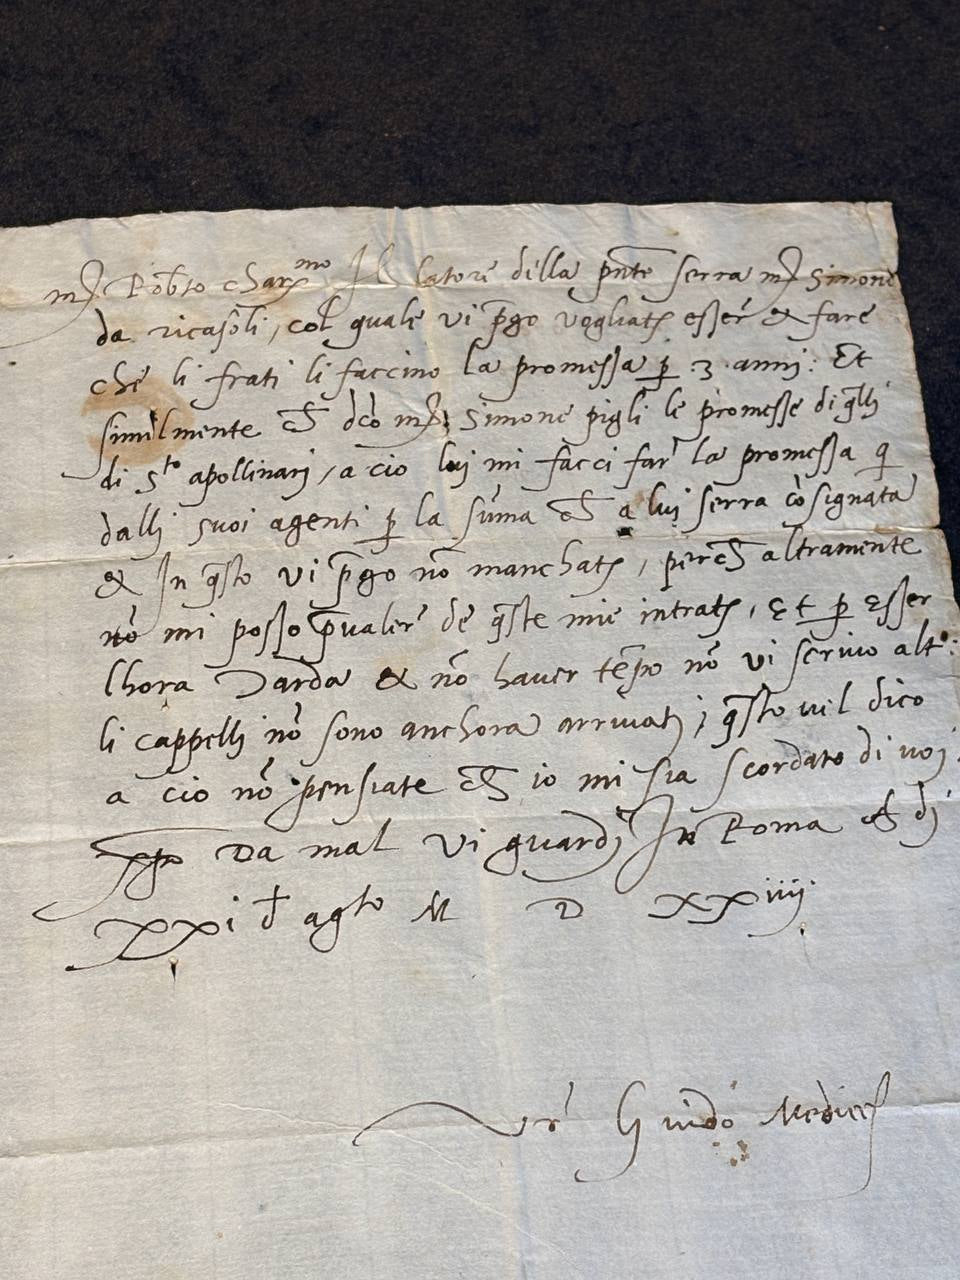 m Robto charmo Il latore della pnte serra m Simone
da ricasoli, col quale vi pgo vogliate esser & fare
che li frati li faccino la promessa p 3 anni: Et
similmente ch dco m Simone pigli le promesse di qlli
di Sto apollinari, a cio lui mi facci far la promessa q
dalli suoi agenti p la suma ch a lui serra cosignata
& In qsto vi pgo no manchate, perch altramente
no mi posso pualer de qste mie intrate, Et p Esser
lhora tarda & no haver tepo no vi scrivo alto:
li cappelli no sono anchora arrivati, qsto vel dico
a cio no pensiate ch io mi sia scordato di voi.
Da mal vi guardi In Roma A di
XXi d agto M D XXiiij
Vr Guido Medices